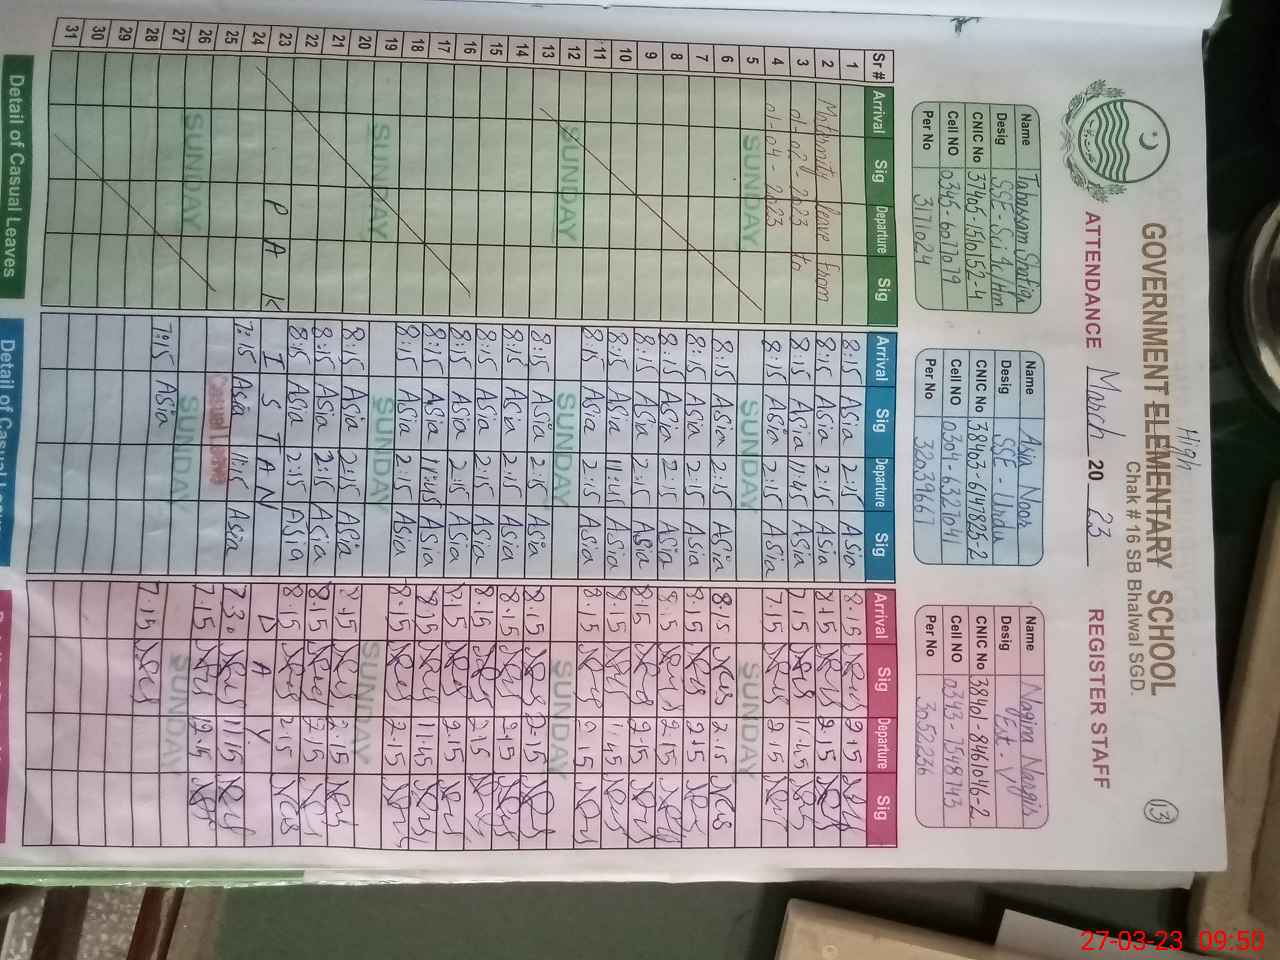 GOVERNMENT ELEMENTARY SCHOOL
High
Chak # 16 SB Bhalwal SGD.
13
ATTENDANCE March 2023 REGISTER STAFF
Name Tabassam Shafiq
Desig SSE-Sci Ic/Hm
CNIC No 37405-1510152-4
Cell NO 0345-6077079
Per No 31711024
Name Asia Noor
Desig SSE-Urdu
CNIC No 38403-6147825-2
Cell NO 0304-6327041
Per No 32039667
Name Nagina Nargis
Desig EST-V
CNIC No 38401-8461016-2
Cell NO 0343-7548743
Per No 3050236
Sr # Arrival Sig Departure Sig Arrival Sig Departure Sig Arrival Sig Departure Sig
1 8:15 Asia 2:15 Asia 8.15 2.15
2 Maternity leave from 8:15 Asia 2:15 Asia 8.15 2.15
3 01-02-2023 to 8:15 Asia 11:45 Asia 7.15 11.45
4 01-04-2023 8:15 Asia 2:15 Asia 7.15 2.15
5 SUNDAY SUNDAY SUNDAY
6 8:15 Asia 2:15 Asia 8.15 2.15
7 8:15 Asia 2:15 Asia 8.15 2.15
8 8:15 Asia 2:15 Asia 8.15 2.15
9 8:15 Asia 2:15 Asia 8.15 2.15
10 8:15 Asia 11:45 Asia 8.15 11.45
11 8:15 Asia 2:15 Asia 8.15 2.15
12 SUNDAY SUNDAY SUNDAY
13 8:15 Asia 2:15 Asia 8.15 2.15
14 8:15 Asia 2:15 Asia 8.15 2.15
15 8:15 Asia 2:15 Asia 8.15 2.15
16 8:15 Asia 2:15 Asia 8.15 2.15
17 8:15 Asia 11:45 Asia 8.15 11.45
18 8:15 Asia 2:15 Asia 8.15 2.15
19
20 SUNDAY SUNDAY SUNDAY
21 8:15 Asia 2:15 Asia 8.15 2.15
22 8:15 Asia 2:15 Asia 8.15 2.15
23 8:15 Asia 2:15 Asia 8.15 2.15
24 P A K I S T A N D A Y
25 7:15 Asia 11:15 Asia 7.30 11.15
26 Casual Leave 7.15 12.45
27 SUNDAY SUNDAY SUNDAY
28 7:15 Asia 7.15
29
30
31
Detail of Casual Leaves Detail of Casual
27-03-23 09:50